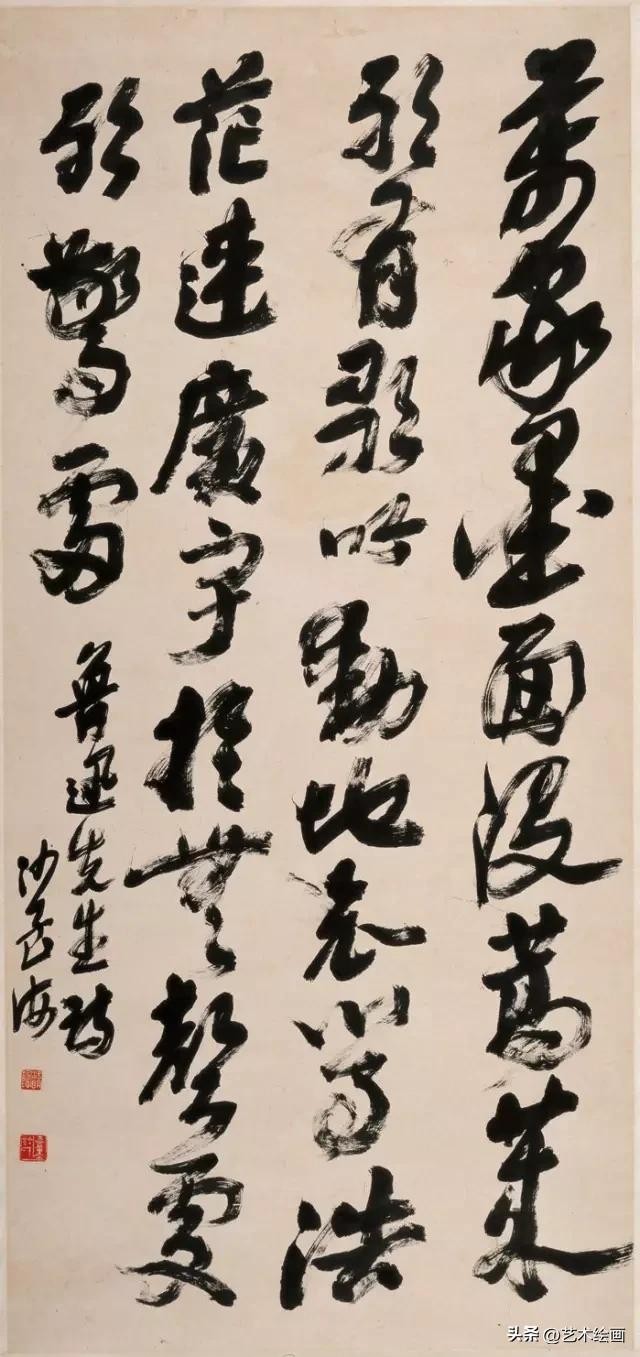 萬家墨面沒蒿萊
敢有歌吟動地哀心事浩
茫連廣宇於無聲處
聽驚雷 魯迅先生詩
沙孟海
头条 @艺术绘画